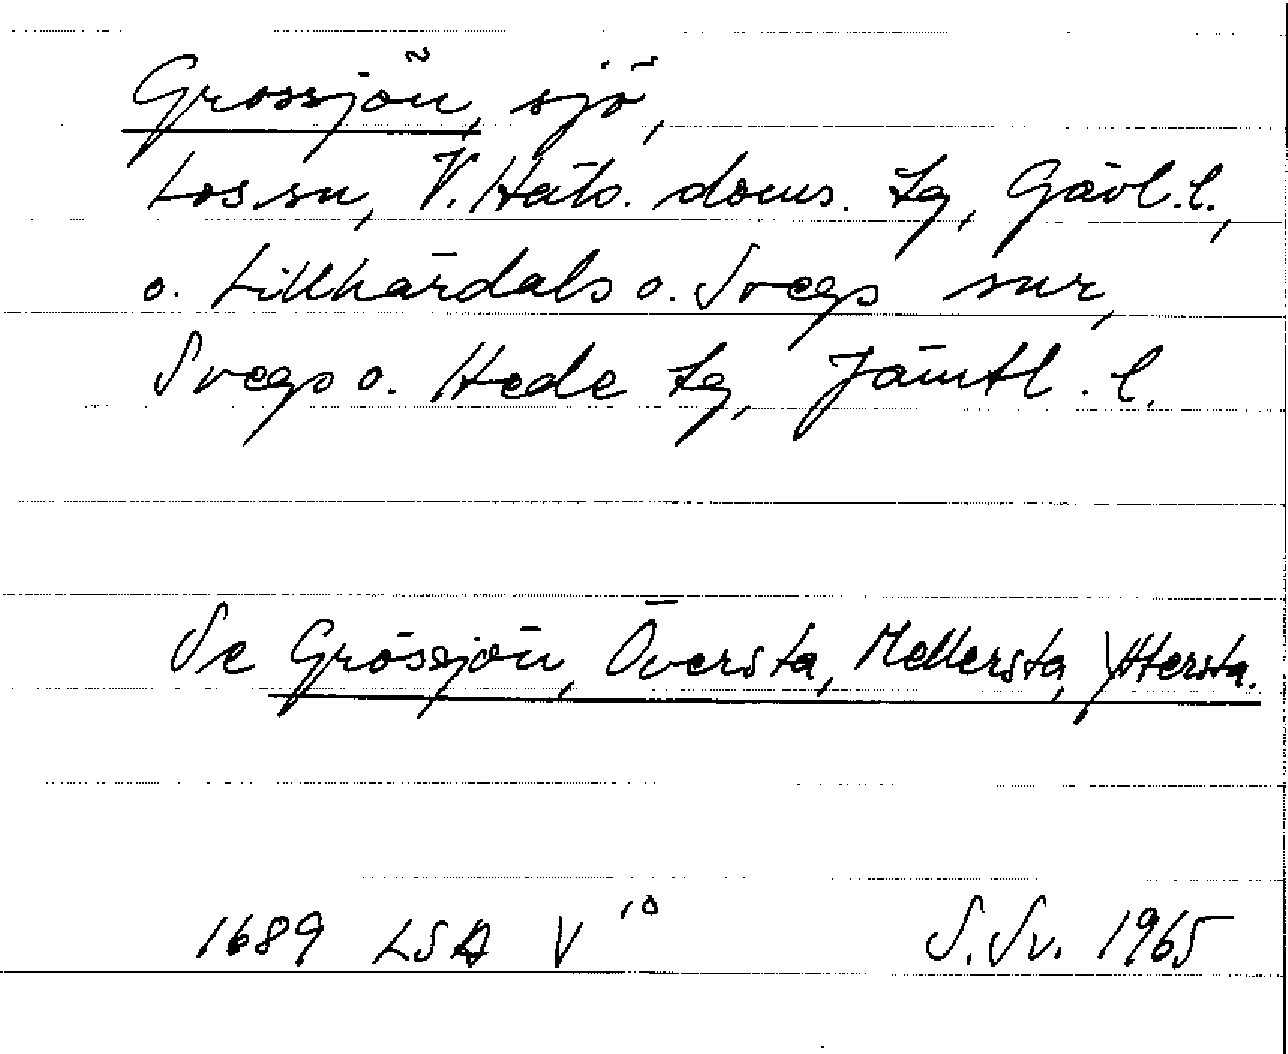 Grossjön, sjö,
Los sn, V. Häls. doms. tg, Gävl. l.,
o. Lillhärdals o. Svegs snr,
Svegs o. Hede tg, Jämtl. l.
Se Grössjön, Översta, Mellersta, Yttersta.
1689 LSA V 10 S. Sv. 1965